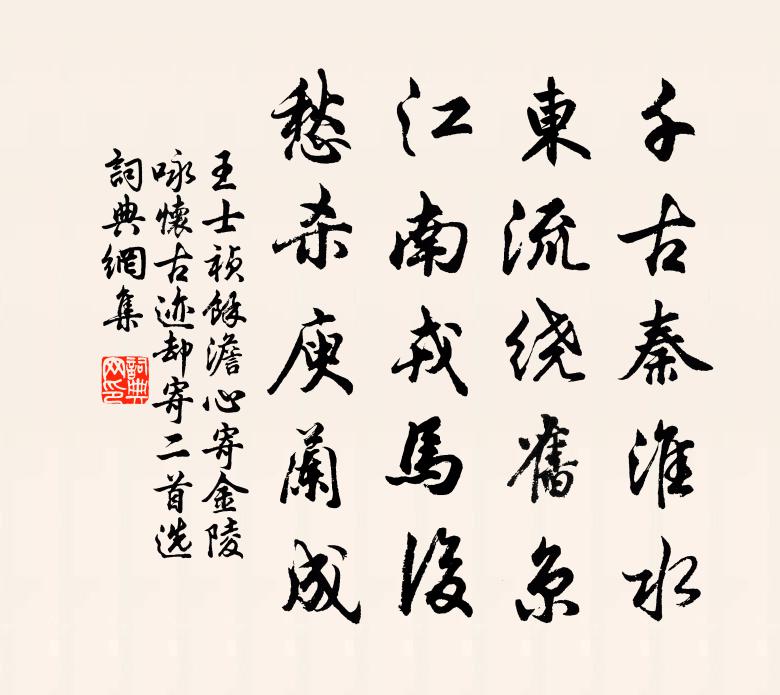 千古秦淮水
東流绕舊京
江南戎馬後
愁杀庾蘭成
王士祯餘澹心寄金陵
咏懷古迹却寄二首选
詞典網集
詞典网印